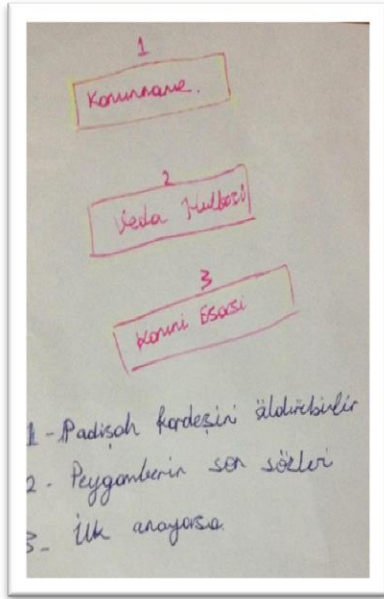 1
Kanunname.
2
Veda Hutbesi
3
Kanuni Esasi
1 - Padişah kardeşini öldürebilir
2 - Peygamberin son sözleri
3 - İlk anayasa